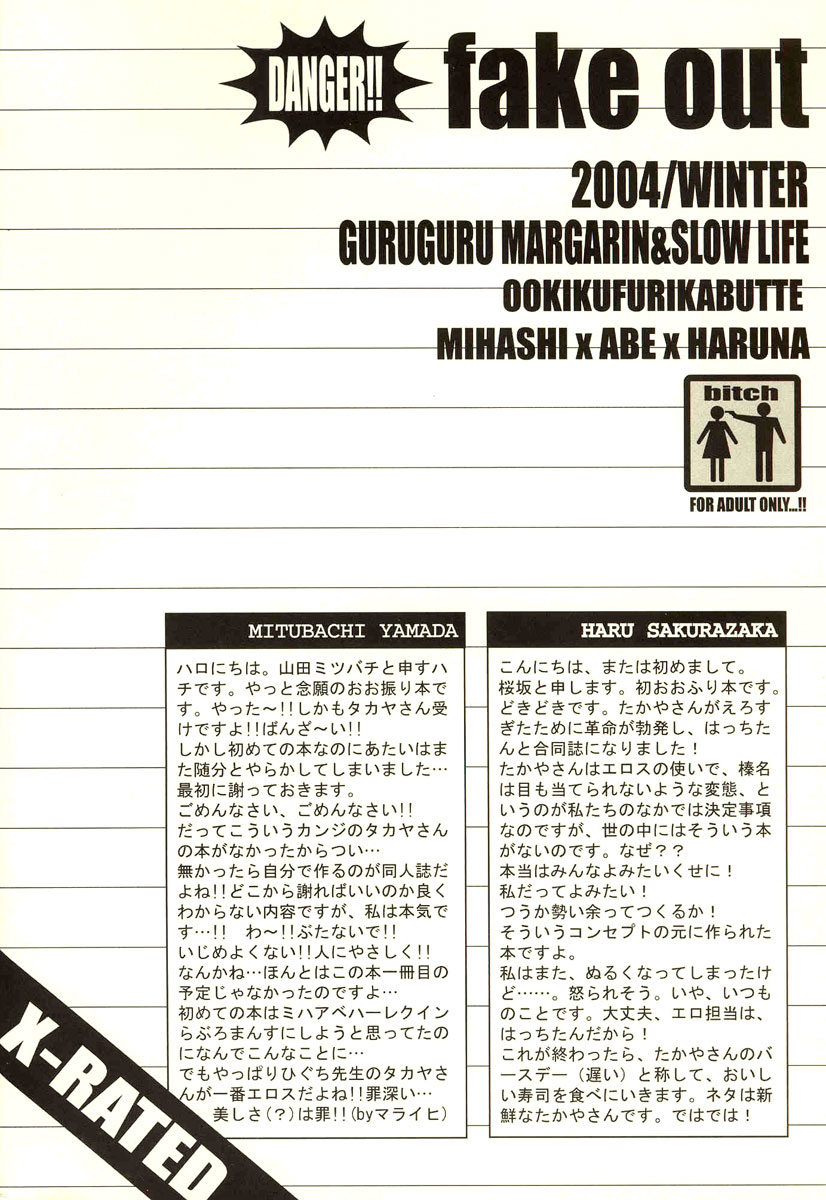 DANGER!!
fake out
2004/WINTER
GURUGURU MARGARIN&SLOW LIFE
OOKIKUFURIKABUTTE
MIHASHI x ABE x HARUNA
bitch
FOR ADULT ONLY...!!
MITUBACHI YAMADA
ハロにちは。山田ミツバチと申すハ
チです。やっと念願のおお振り本で
す。やった～!!しかもタカヤさん受
けですよ!!ばんざ～い!!
しかし初めての本なのにあたいはま
た随分とやらかしてしまいました…
最初に謝っておきます。
ごめんなさい、ごめんなさい!!
だってこういうカンジのタカヤさん
の本がなかったからつい…
無かったら自分で作るのが同人誌だ
よね!!どこから謝ればいいのか良く
わからない内容ですが、私は本気で
す…!!　わ～!!ぶたないで!!
いじめよくない!!人にやさしく!!
なんかね…ほんとはこの本一冊目の
予定じゃなかったのですよ…
初めての本はミハアベハーレクイン
らぶろまんすにしようと思ってたの
になんでこんなことに…
でもやっぱりひぐち先生のタカヤさ
んが一番エロスだよね!!罪深い…
美しさ(?)は罪!!(byマライヒ)
HARU SAKURAZAKA
こんにちは、または初めまして。
桜坂と申します。初おおふり本です。
どきどきです。たかやさんがえろす
ぎたために革命が勃発し、はっちた
んと合同誌になりました！
たかやさんはエロスの使いで、榛名
は目も当てられないような変態、と
いうのが私たちのなかでは決定事項
なのですが、世の中にはそういう本
がないのです。なぜ？？
本当はみんなよみたいくせに！
私だってよみたい！
つうか勢い余ってつくるか！
そういうコンセプトの元に作られた
本ですよ。
私はまた、ぬるくなってしまったけ
ど……。怒られそう。いや、いつも
のことです。大丈夫、エロ担当は、
はっちたんだから！
これが終わったら、たかやさんのバ
ースデー（遅い）と称して、おいし
い寿司を食べにいきます。ネタは新
鮮なたかやさんです。ではでは！
X-RATED